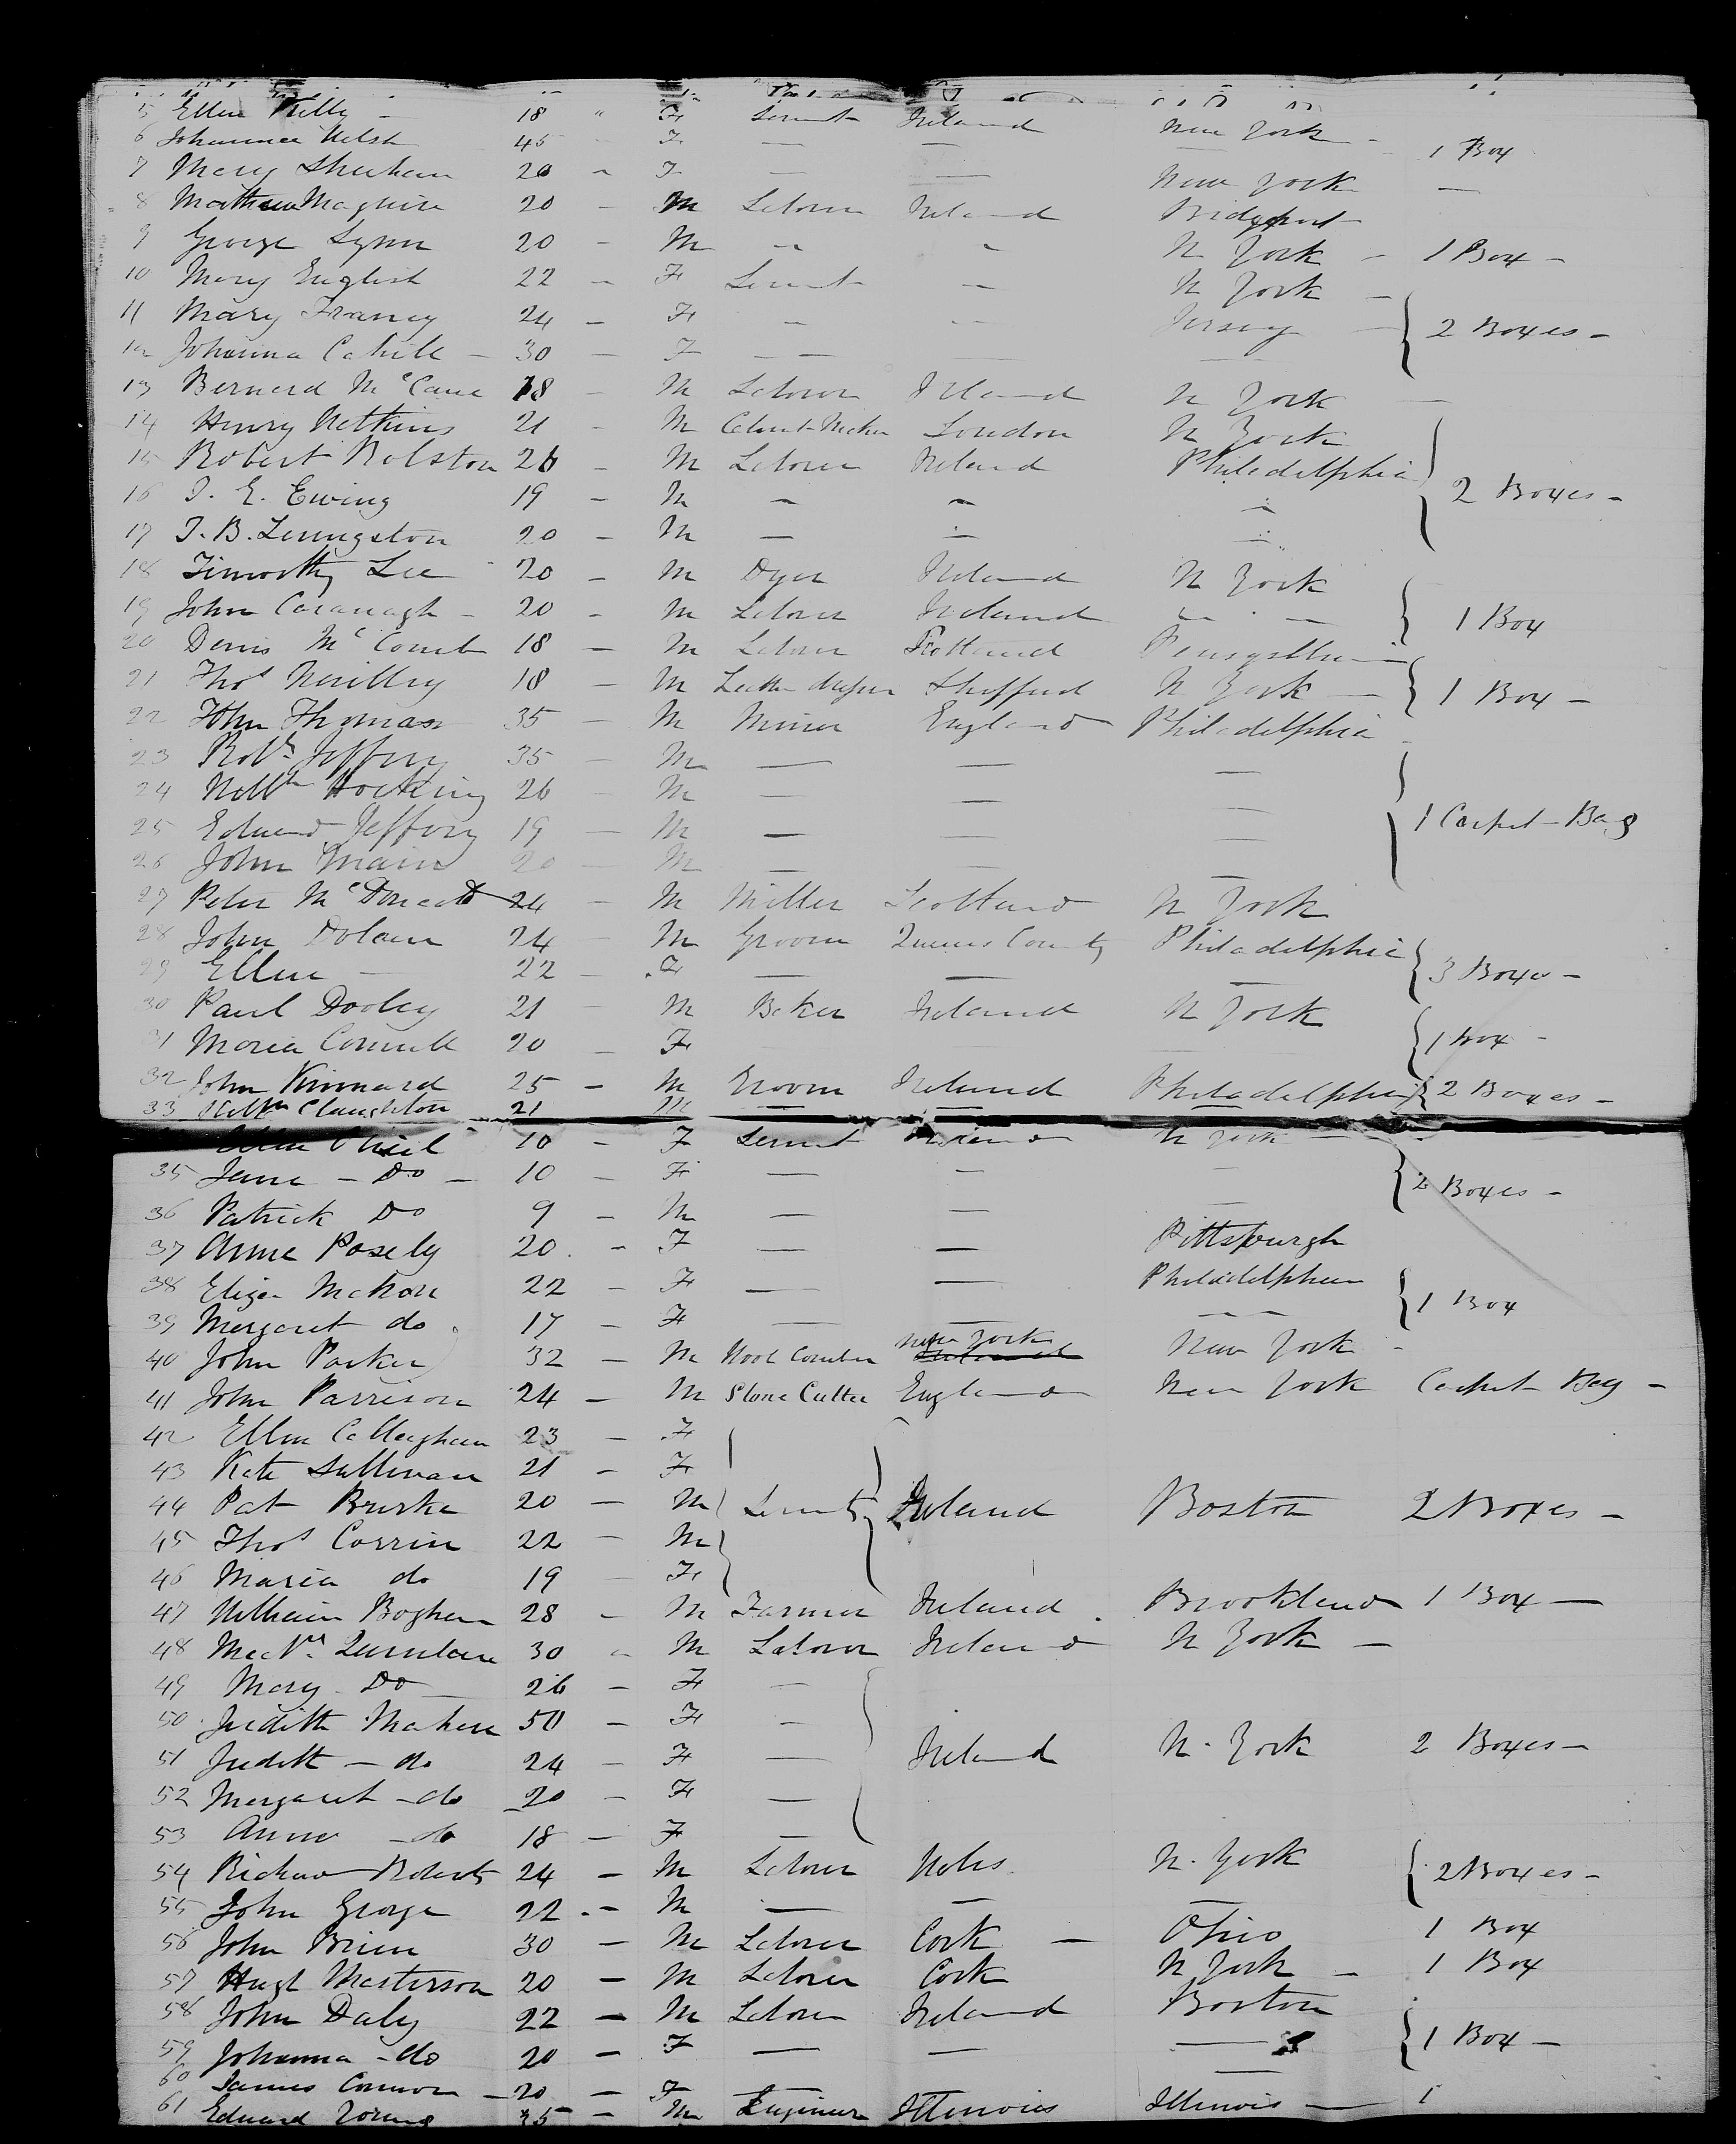 5 Ellen Kelly - 18 " F Servt Ireland New York -
6 Johanna Welsh 45 - F — — — 1 Box
7 Mary Sheehan 20 - F — — New York —
8 Mathew Maguire 20 - M Laborer Ireland Bridgeport
9 George Lynn 20 - M " " N York - 1 Box -
10 Mary English 22 - F Servt - N York -
11 Mary Franey 24 - F - - Jersey - 2 Boxes -
12 Johanna Cahill - 30 - F — — —
13 Bernard McCane 18 - M Laborer Ireland N York -
14 Henry Watkins 21 - M Cabinet Maker London N York
15 Robert Rolston 26 - M Laborer Ireland Philadelphia
16 J. E. Ewing 19 - M - - - 2 Boxes -
17 J. B. Levingston 20 - M — - -
18 Timothy Lee 20 - M Dyer Ireland N York
19 John Cavanagh - 20 - M Laborer Ireland - - 1 Box
20 Denis McComb 18 - M Laborer
21 Thos 18 - M Leather dresser Sheffield N York - 1 Box -
22 John Thomas 35 - M Miner England Philadelphia -
23 Robt Jeffery 35 - M — — —
24 Willm Hocking 26 - M — — —
25 Edward Jeffery 19 - M — — — 1 Carpet Bag
26 John Main 20 - M — — —
27 Peter McDonald 24 - M Miller Scotland N York
28 John Dolan 24 - M Groom Queens County Philadelphia
29 Ellen — 22 - F — — — 3 Boxes -
30 Paul Dooley 21 - M Baker Ireland N York
31 Maria Connell 20 - F — 1 Box -
32 John Kinnard 25 - M Groom Ireland Philadelphia 2 Boxes -
33 Willm Claughton 21 M — — —
Ellen O'Neil 10 - F Servt Ireland N York -
35 Jane - Do - 10 - F — — — 2 Boxes -
36 Patrick Do 9 - M — — —
37 Anne Posely 20 - F — — Pittsburgh
38 Eliza McMahon 22 - F — — Philadelphia
39 Margaret do 17 - F — — — 1 Box
40 John Parker 32 - M Wool Comber New York New York -
41 John Parrison 24 - M Stone Cutter England New York Carpet Bag -
42 Ellen Callaghan 23 - F
43 Kate Sullivan 21 - F
44 Pat Burke 20 - M Servts Ireland Boston 2 Boxes -
45 Thos Corrin 22 - M
46 Maria do 19 - F
47 William Boghen 28 - M Farmer Ireland Brookland 1 Box —
48 Quinlan 30 - M Laborer Ireland N York -
49 Mary Do 26 - F -
50 Judith Mahon 50 - F -
51 Judith - do 24 - F — Ireland N. York 2 Boxes -
52 Margaret - do 20 - F —
53 Anne - do 18 - F —
54 Richard Roberts 24 - M Laborer Wales N. York 2 Boxes -
55 John George 22 - M — — —
56 John Brien 30 - M Laborer Cork - Ohio 1 Box
57 Hugh Masterson 20 - M Laborer Cork N York - 1 Box
58 John Daly 22 - M Laborer Ireland Boston
59 Johanna - do 20 - F — — — 1 Box -
60 James Connor - 20 - F — —
61 Edward Young 35 - M Engineer Illinois Illinois - 1